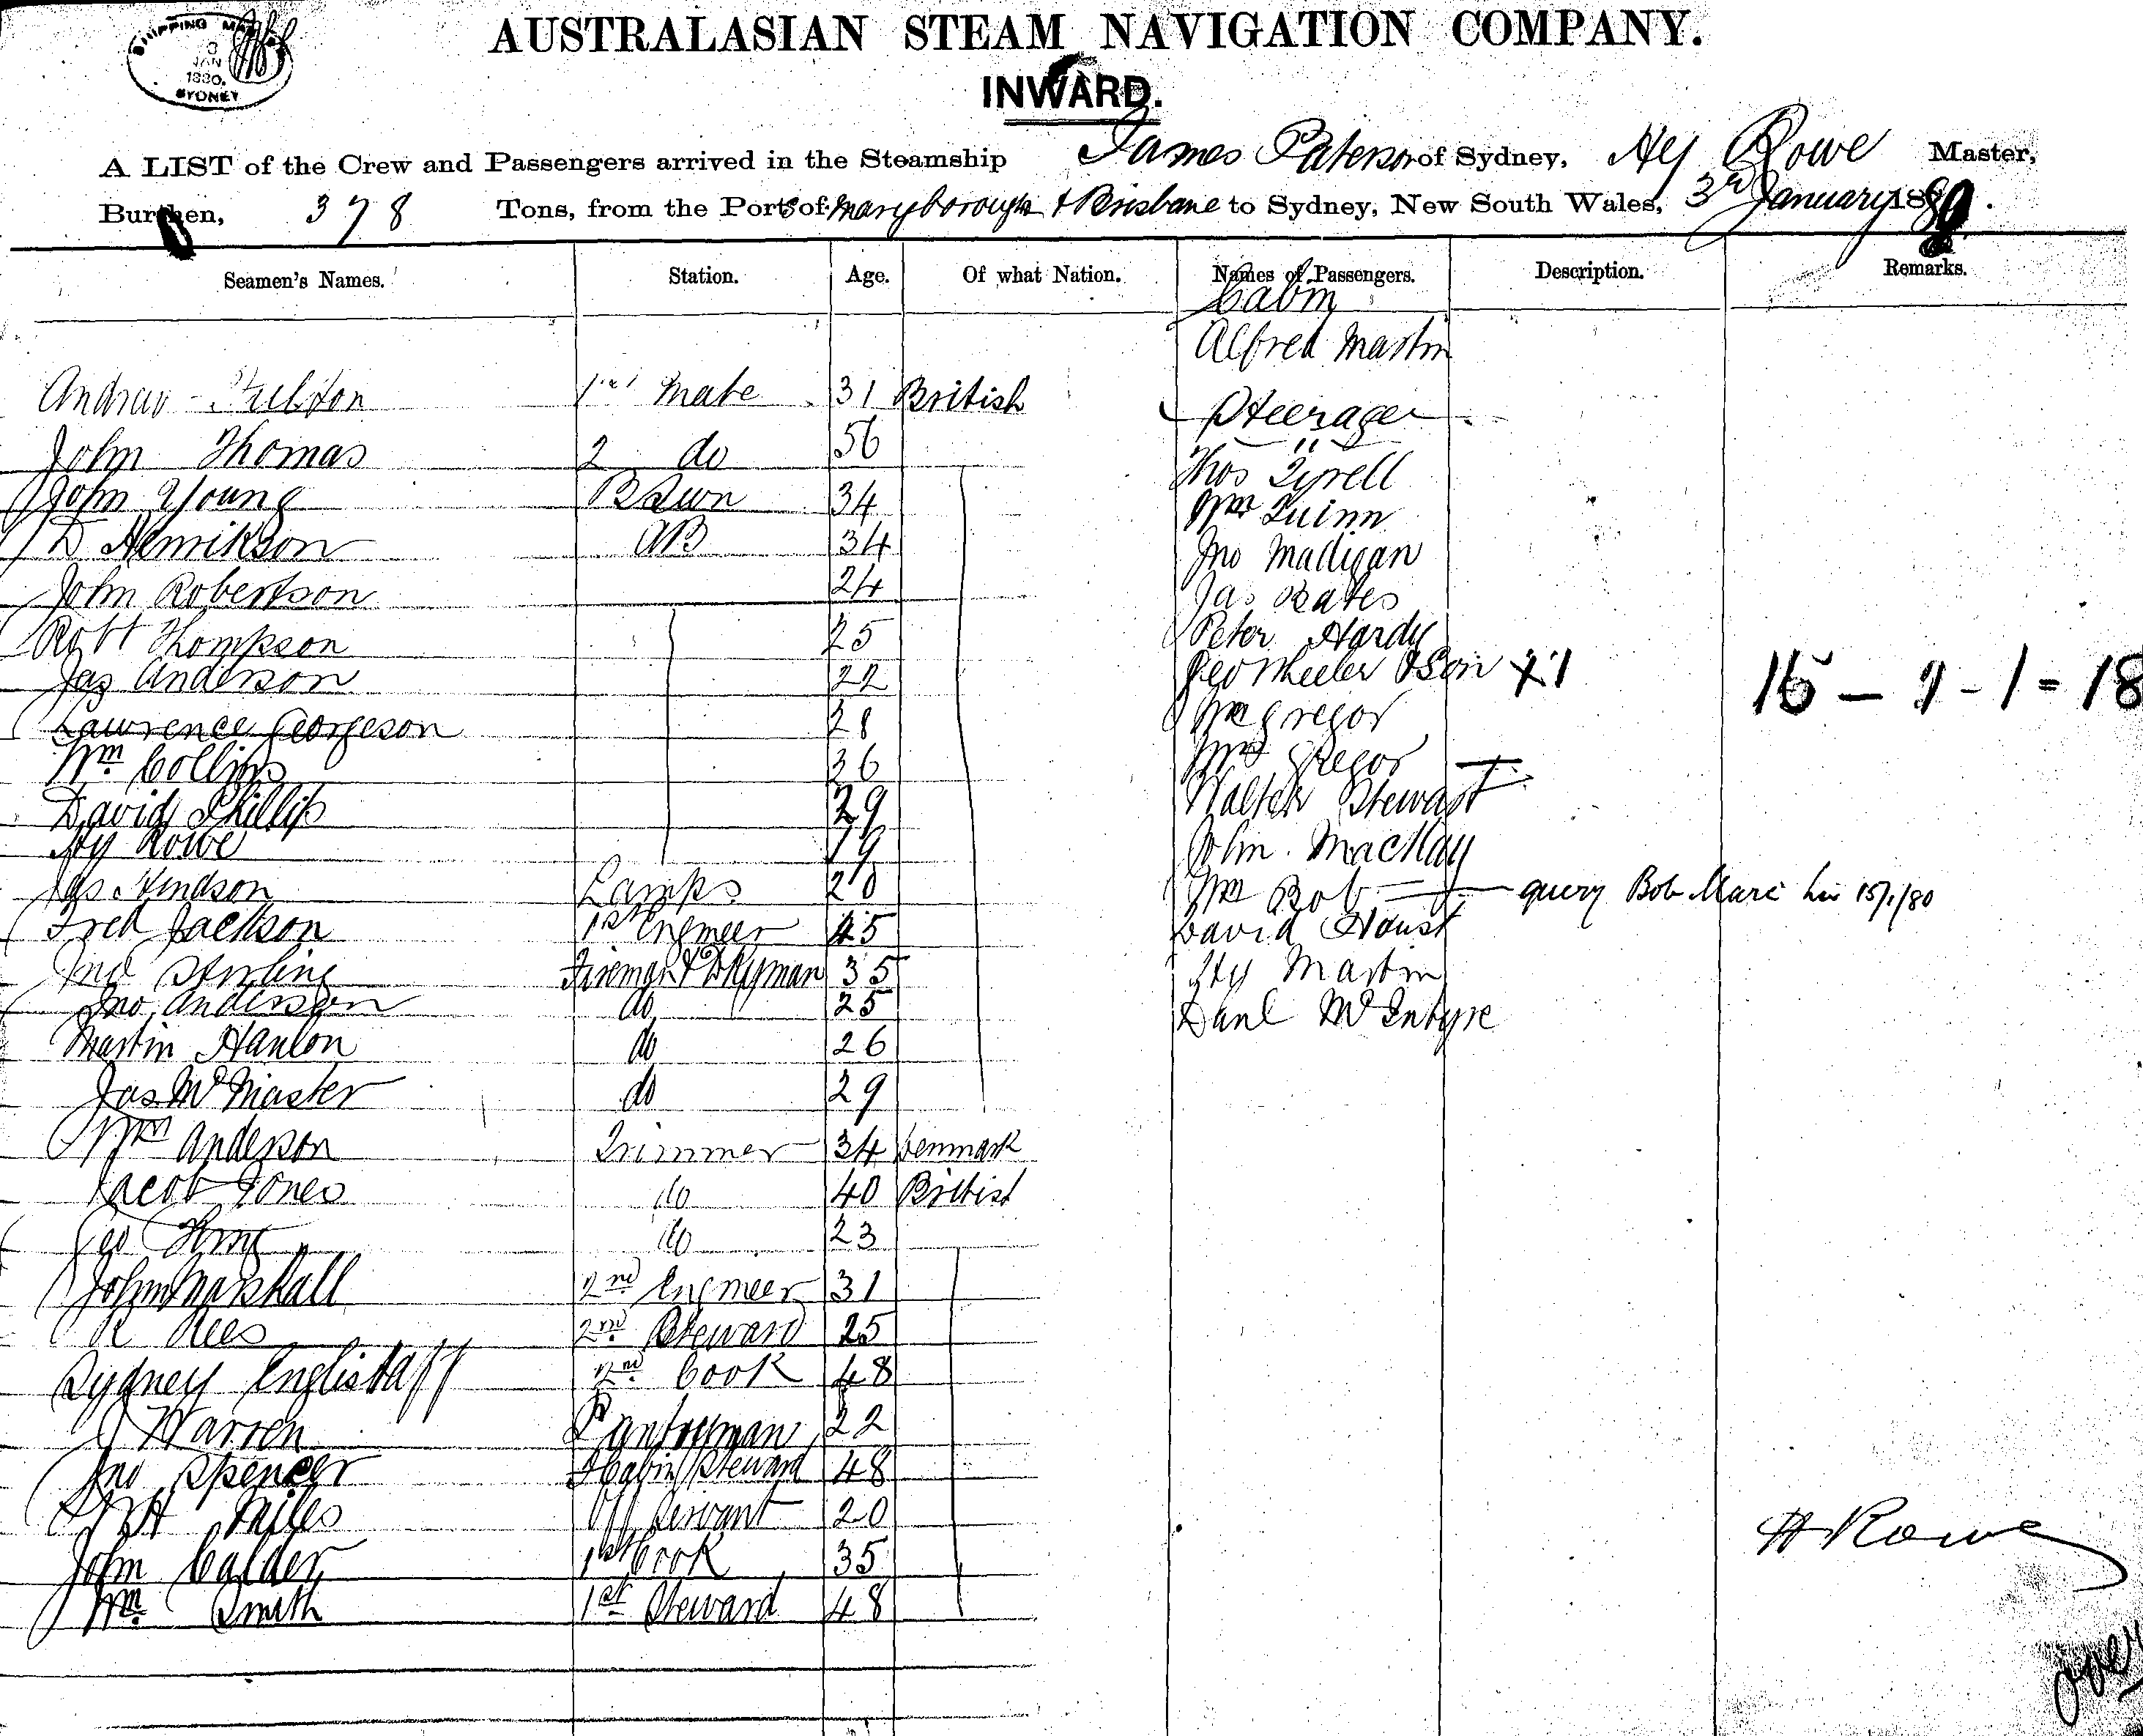 SHIPPING MASTER
3
JAN
1880
SYDNEY
AUSTRALASIAN STEAM NAVIGATION COMPANY.
INWARD.
A LIST of the Crew and Passengers arrived in the Steamship James Paterson of Sydney, Hy Rowe Master,
Burthen, 378 Tons, from the Ports of Maryborough & Brisbane to Sydney, New South Wales, 3rd January 1880.
Seamen's Names. Station. Age. Of what Nation. Names of Passengers. Description. Remarks.
Cabin
Alfred Martin
Andrew 1st Mate 31 British Steerage
John Thomas 2 do 56 Thos Tyrell
John Young BSwn 34 Wm Quinn
D Henrikson AB 34 Jno Madigan
John Robertson 24 Jas Bates
Robt Thompson 25 Peter Hardy
Jas Anderson 22 Geo Wheeler & Son X1 16 - 9 - 1 = 18
Lawrence Georgeson 28 Mr Gregor
Wm Collins 36 Mrs Gregor
David Phillips 29 Walter Stewart
Hy Rowe 19 John MacKay
Jas Hindson Lamps 20 Wm Bob query Bob 15/1/80
Fred Jackson 1st Engineer 45 David
Jno Stirling Fireman & Dkyman 35 Hy Martin
Jno Anderson do 25 Danl McIntyre
Martin Hanlon do 26
Jas McMaster do 29
Wm Anderson Trimmer 34 Denmark
Jacob Jones do 40 British
Geo King do 23
John Marshall 2nd Engineer 31
R Rees 2nd Steward 25
Sydney 2nd Cook 48
J Warren Pantryman 22
Jno Spencer F Cabin Steward 48
Miles Off Servant 20
John Calder 1st Cook 35
Wm Smith 1st Steward 48
H Rowe